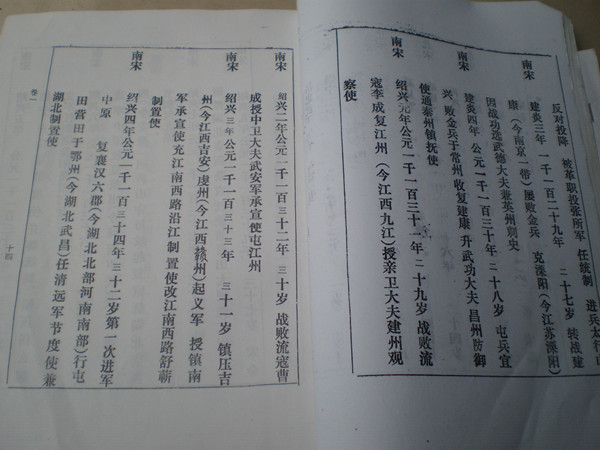 反对投降 被革职投张所军 任统制 进兵太行山
南宋
建炎三年 一千一百二十九年 二十七岁 转战建
康（今南京一带）屡败金兵 克溧阳（今江苏溧阳）
因战功迁武德大夫兼英州刺史
南宋
建炎四年 公元一千一百三十年 二十八岁 屯兵宜
兴，败金兵于常州 收复建康 升武功大夫 昌州防御
使通泰州镇抚使
南宋
绍兴元年公元一千一百三十一年 二十九岁 战败流
寇李成复江州（今江西九江）授亲卫大夫建州观
察使
南宋
绍兴二年公元一千一百三十二年 三十岁 战败流寇曹
成授中卫大夫武安军承宣使屯江州
南宋
绍兴三年公元一千一百三十三年 三十一岁 镇压吉
州（今江西吉安）虔州（今江西赣州）起义军 授镇南
军承宣使充江南西路沿江制置使改江南西路舒蕲
制置使
南宋
绍兴四年公元一千一百三十四年三十二岁第一次进军
中原 复襄汉六郡（今湖北北部河南南部）行屯
田营田于鄂州（今湖北武昌）任清远军节度使兼
湖北制置使
卷一
十四